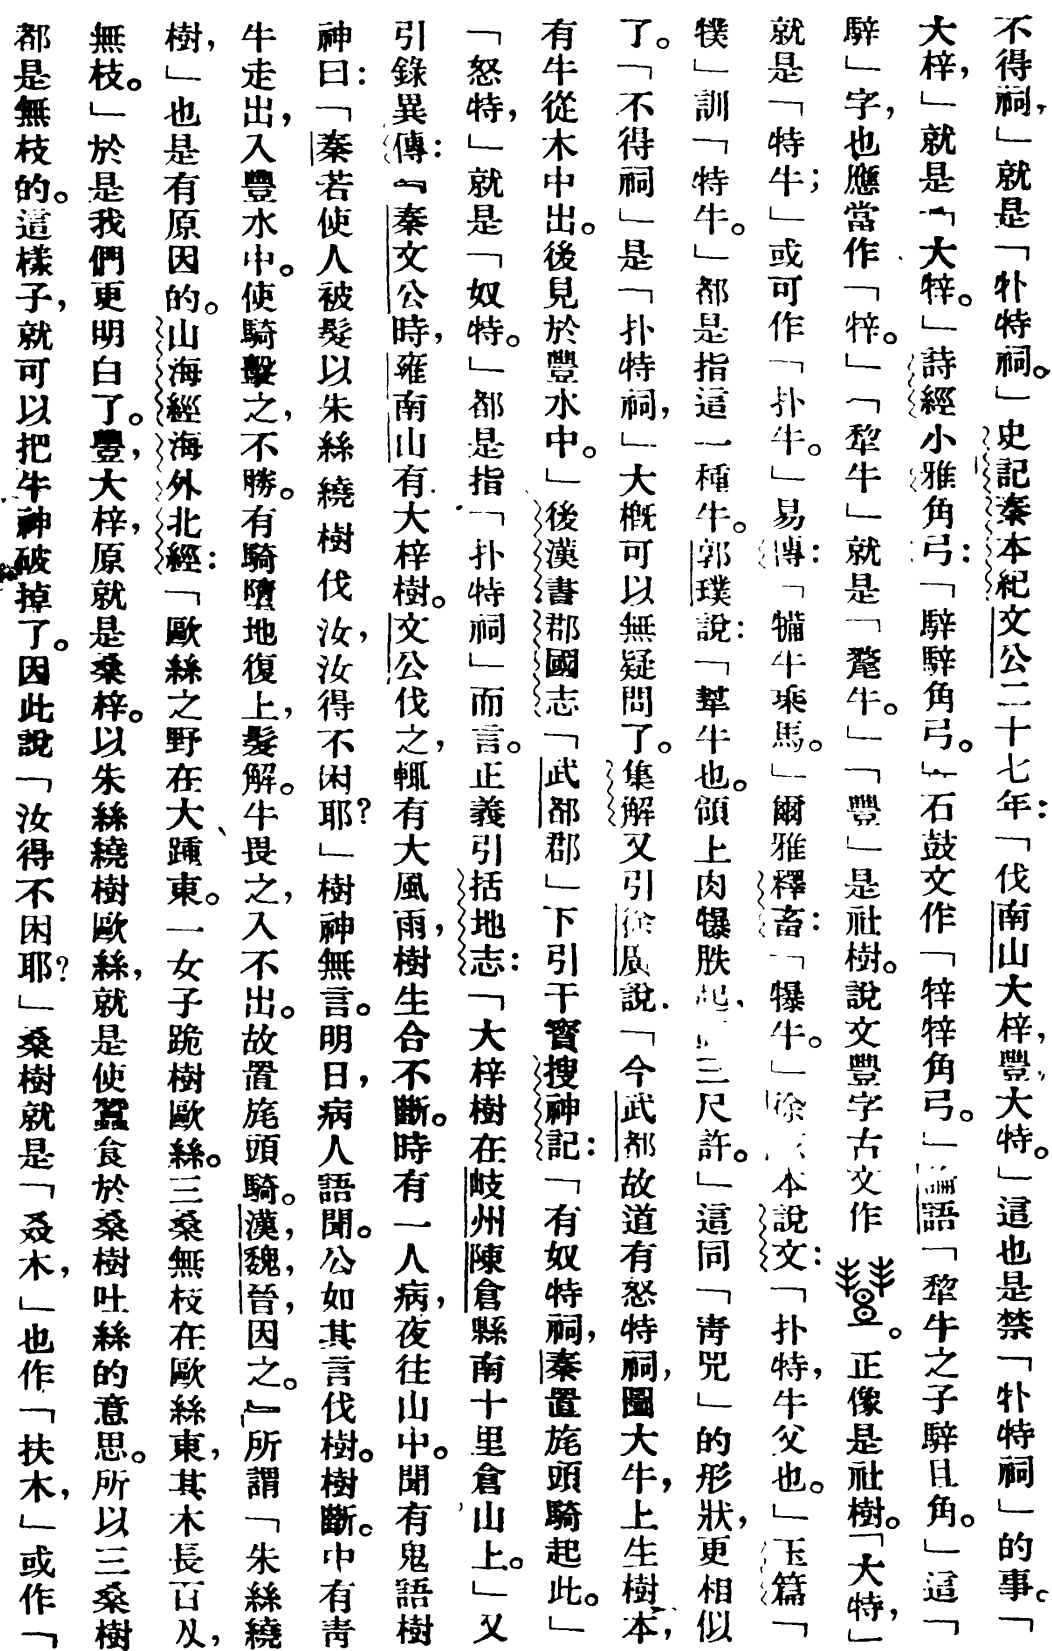 不得祠，」就是「牪特祠。」史記秦本紀文公二十七年：「伐南山大梓，豐大特。」這也是禁「牪特祠」的事。「
大梓，」就是「大牸。」詩經小雅角弓：「騂騂角弓。」石鼓文作「牸牸角弓。」論語「犂牛之子騂且角。」這「
騂」字，也應當作「牸。」「犂牛」就是「氂牛。」「豐」是社樹。說文豐字古文作。正像是社樹。「大特，」
就是「特牛；」或可作「扑牛。」易傳：「犕牛乘馬。」爾雅釋畜：「犦牛。」徐本說文：「扑特，牛父也。」玉篇「
㹒」訓「特牛。」都是指這一種牛。郭璞說：「犎牛也。領上肉犦胅起，三尺許。」這同「青兕」的形狀，更相似
了。「不得祠」是「扑特祠，」大槪可以無疑問了。集解又引徐廣說．「今武都故道有怒特祠，圖大牛，上生樹本，
有牛從木中出。後見於豐水中。」後漢書郡國志「武都郡」下引干寶搜神記：「有奴特祠，秦置旄頭騎起此。」
「怒特，」就是「奴特。」都是指「扑特祠」而言。正義引括地志：「大梓樹在岐州陳倉縣南十里倉山上。」又
引錄異傳：『秦文公時，雍南山有大梓樹。文公伐之，輒有大風雨，樹生合不斷。時有一人病，夜往山中。聞有鬼語樹
神曰：「秦若使人被髮以朱絲繞樹伐汝，汝得不困耶？」樹神無言。明日，病人語聞。公如其言伐樹。樹斷。中有青
牛走出，入豐水中。使騎擊之，不勝。有騎墮地復上，髮解。牛畏之，入不出。故置旄頭騎。漢，魏，晉，因之。』所謂「朱絲繞
樹，」也是有原因的。山海經海外北經：「歐絲之野在大踵東。一女子跪樹歐絲。三桑無枝在歐絲東，其木長百仞，
無枝。」於是我們更明白了。豐，大梓，原就是桑梓。以朱絲繞樹歐絲，就是使蠶食於桑樹吐絲的意思。所以三桑樹
都是無枝的。這樣子，就可以把牛神破掉了。因此說「汝得不困耶？」桑樹就是「叒木，」也作「扶木，」或作「